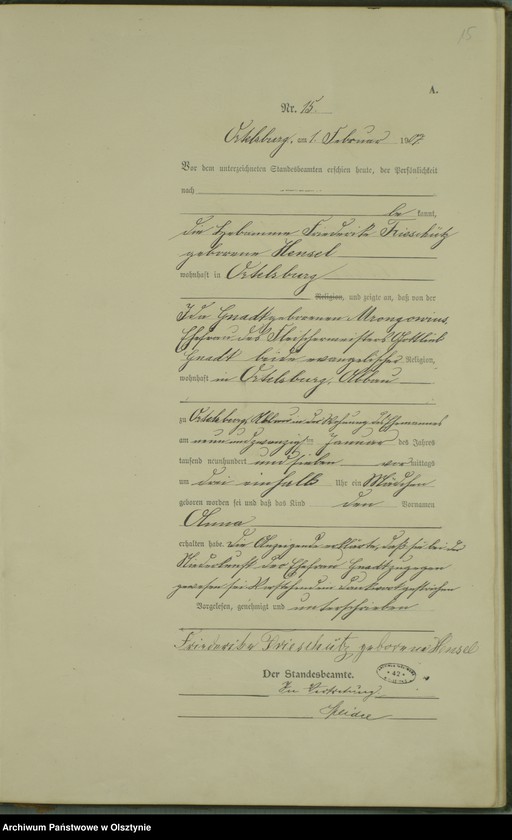 15
A.
Nr. 15.
Ortelsburg, am 1. Februar 1907.
Vor dem unterzeichneten Standesbeamten erschien heute, der Persönlichkeit
nach
be kannt,
die Hebamme Friederike Frieschütz
geborene Hensel
wohnhaft in Ortelsburg
Religion, und zeigte an, daß von der
Ida Gnadt geborenen Mrongowius,
Ehefrau des Fleischermeisters Gottlieb
Gnadt beide evangelischer Religion,
wohnhaft in Ortelsburg, Abbau
zu Ortelsburg, Abbau in der Wohnung des Ehemannes
am neun und zwanzigsten Januar des Jahres
tausend neunhundert und sieben vormittags
um drei einhalb Uhr ein Mädchen
geboren worden sei und daß das Kind den Vornamen
Anna
erhalten habe. Die Anzeigende erklärte, daß sie bei der
Niederkunft der Ehefrau Gnadt zugegen
gewesen sei. Vorstehend ein Druckwort gestrichen
Vorgelesen, genehmigt und unterschrieben
Friederike Frieschütz geborene Hensel
Der Standesbeamte.
In Vertretung
42
Archiwum Państwowe w Olsztynie